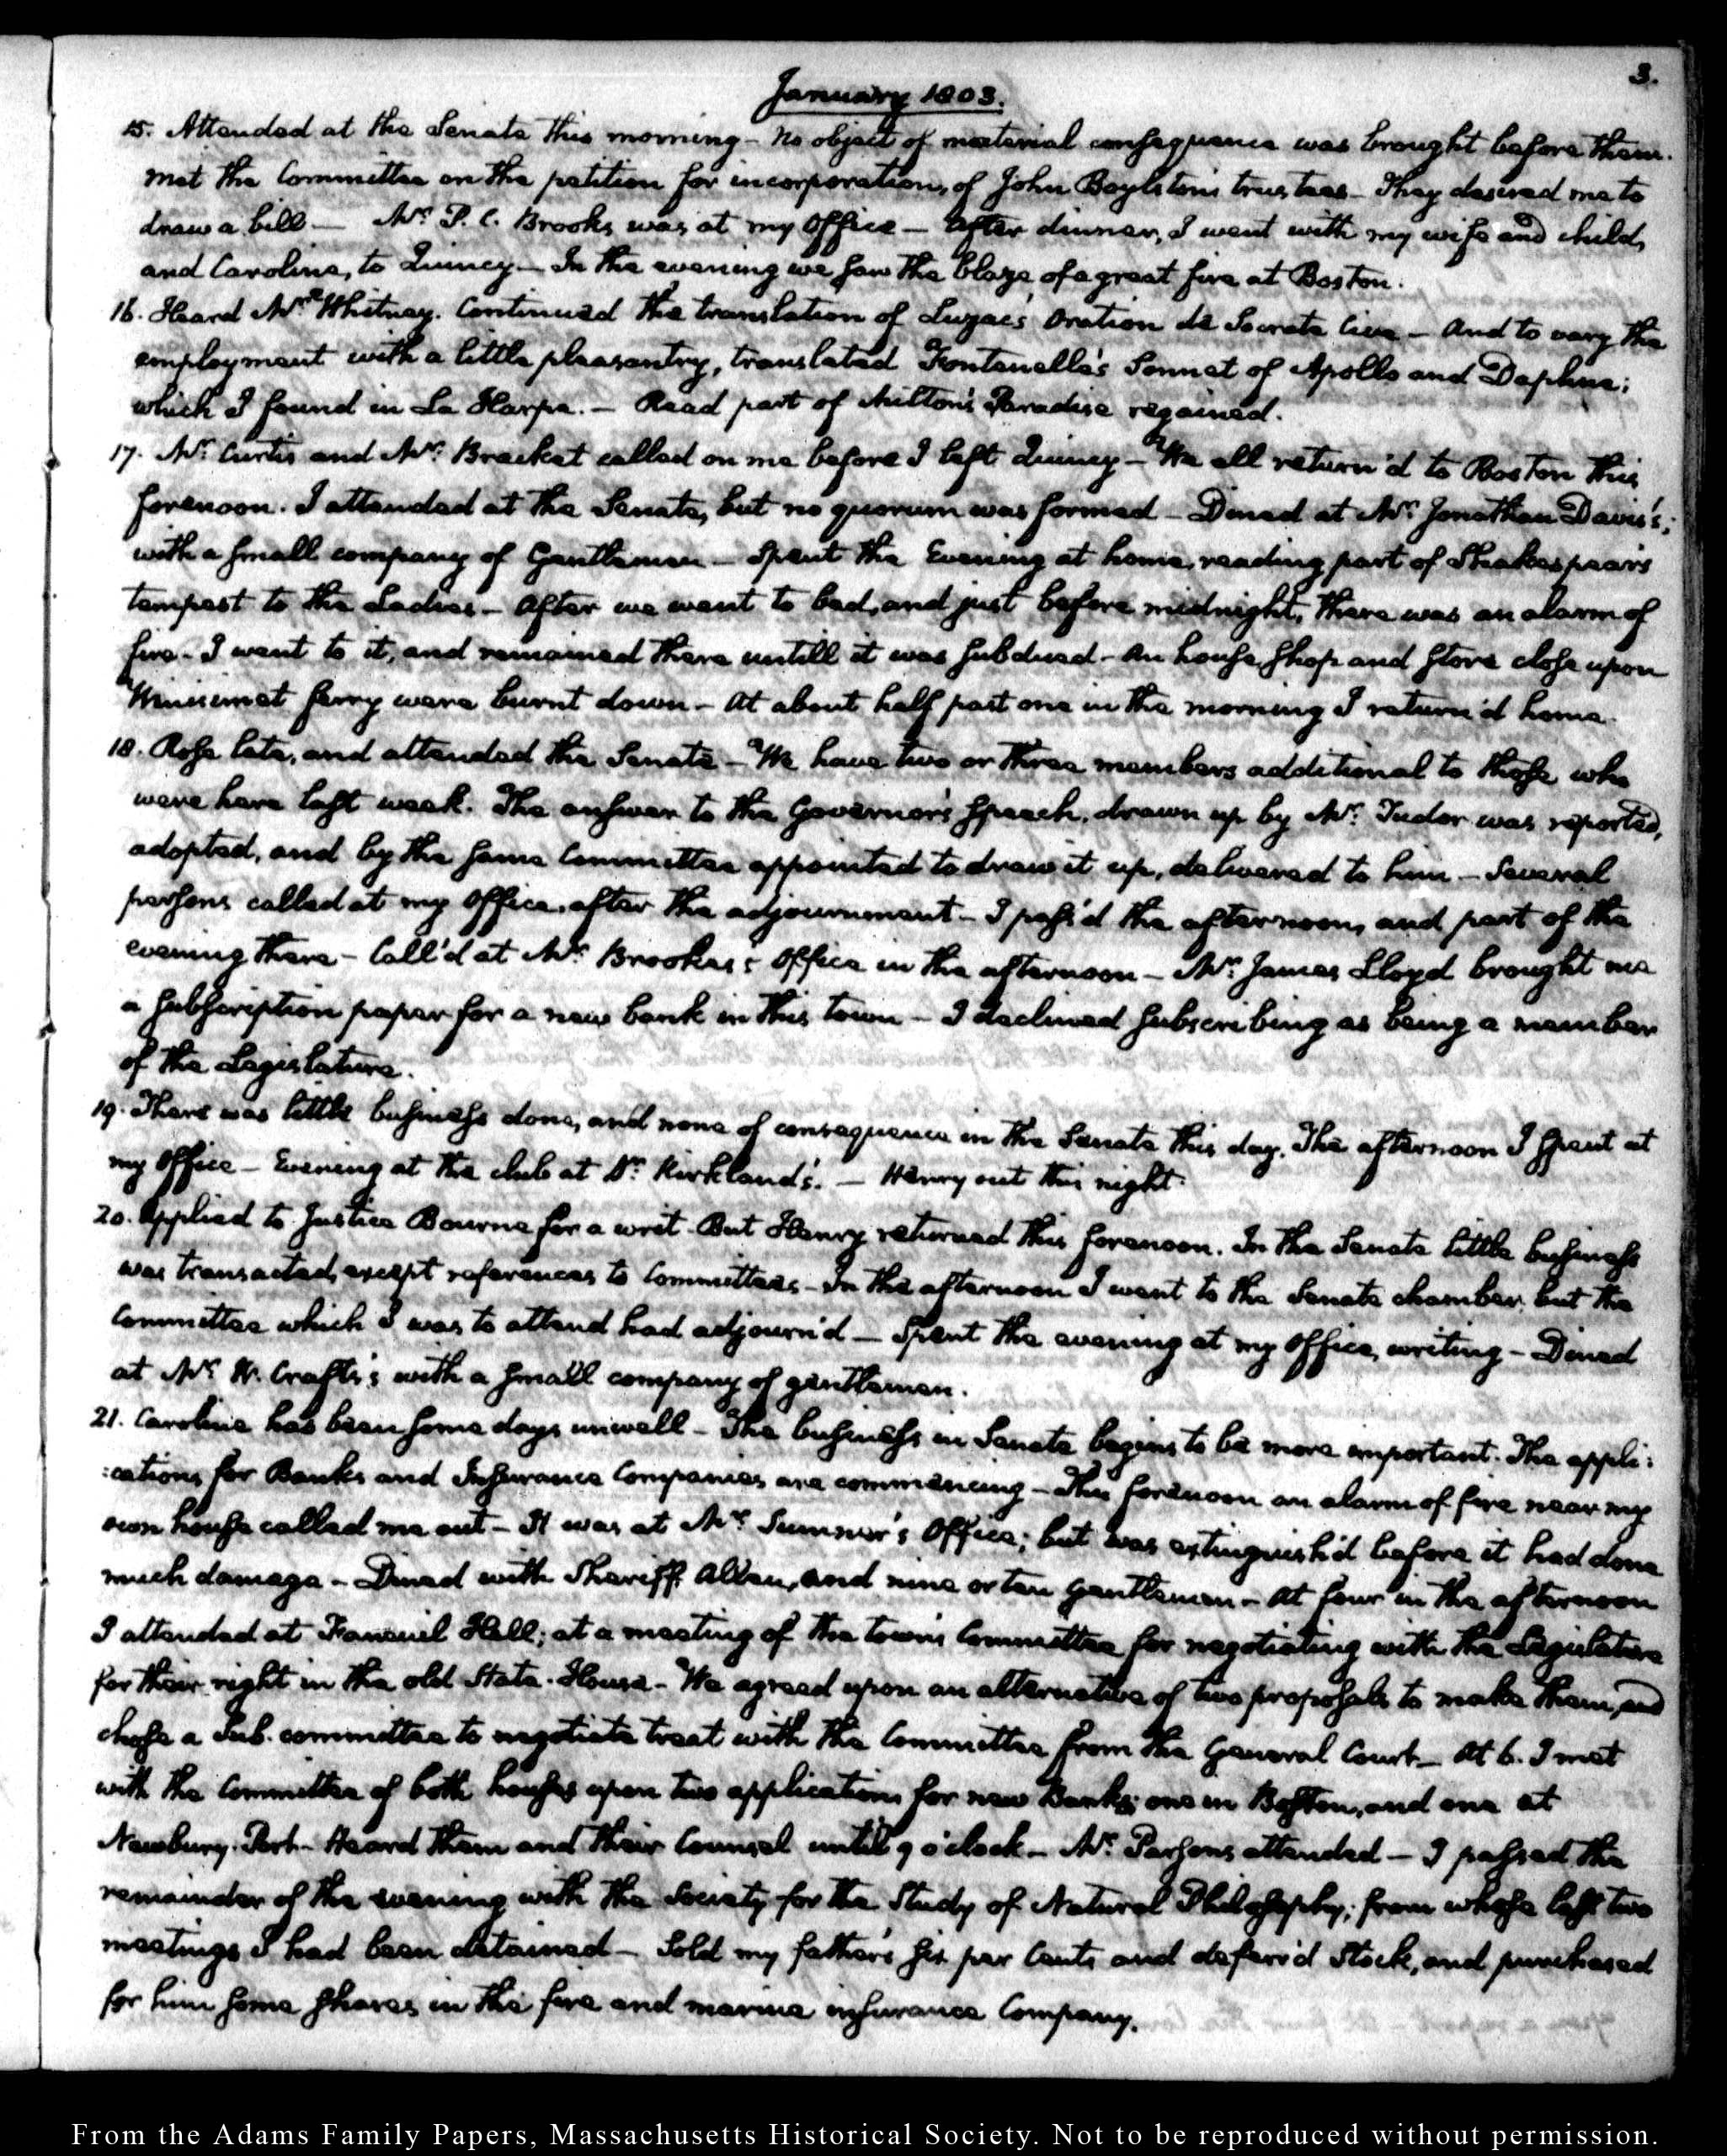 3.
January 1803.
15. Attended at the Senate this morning – No object of material consequence was brought before them.
met the Committee on the petition for incorporation, of John Boylston's trustees – They desired me to
draw a bill — Mr. P. C. Brooks was at my office – After dinner, I went with my wife and child,
and Caroline, to Quincy – In the evening we saw the blaze of a great fire at Boston.
16. Heard Mr. Whitney. Continued the translation of Luzac's Oration de Socrate Cive – And to vary the
employment with a little pleasantry, translated Fontenelle's Sonnet of Apollo and Daphne;
which I found in La Harpe. – Read part of Milton's Paradise regained.
17. Mr. Curtis and Mr. Bracket called on me before I left Quincy – We all return'd to Boston this
forenoon. I attended at the Senate, but no quorum was formed – Dined at Mr. Jonathan Davis's;
with a small company of Gentlemen – Spent the Evening at home, reading part of Shakespear's
tempest to the Ladies – After we went to bed, and just before midnight, there was an alarm of
fire – I went to it, and remained there untill it was subdued – An house, shop and store close upon
Winnisimet ferry were burnt down – At about half past one in the morning I return'd home.
18. Rose late, and attended the Senate – We have two or three members additional to those who
were here last week. The answer to the Governor's speech, drawn up by Mr. Tudor was reported,
adopted, and by the same Committee appointed to draw it up, delivered to him – Several
persons called at my Office, after the adjournment – I pass'd the afternoon, and part of the
evening there – Call'd at Mr. Brookes's Office in the afternoon – Mr. James Lloyd brought me
a subscription paper for a new bank in this town – I declined subscribing as being a member
of the Legislature.
19. There was little business done, and none of consequence in the Senate this day. The afternoon I spent at
my Office – Evening at the club at Dr. Kirkland's. – Henry out this night.
20. Applied to Justice Bourne for a writ. But Henry returned this forenoon. In the Senate little business
was transacted, except references to Committees – In the afternoon I went to the Senate chamber, but the
Committee which I was to attend had adjourn'd – Spent the evening at my Office, writing – Dined
at Mr. W. Crafts's with a small company of gentlemen.
21. Caroline has been some days unwell – The business in Senate begins to be more important. The appli:
:cations for Banks and Insurance Companies are commencing – This forenoon an alarm of fire near my
own house called me out – It was at Mr. Sumner's Office; but was extinguish'd before it had done
much damage – Dined with Sheriff Allen, and nine or ten gentlemen – At four in the afternoon
I attended at Faneuil Hall; at a meeting of the town's Committee for negotiating with the Legislature
for their right in the old State-House – We agreed upon an alternative of two proposals to make them, and
chose a Sub-committee to negotiate treat with the Committee from the General Court – At 6. I met
with the Committee of both houses upon two applications for new Banks; one in Boston, and one at
Newbury-Port – Heard them and their Counsel until 9 o'clock – Mr. Parsons attended – I passed the
remainder of the evening with the Society for the Study of Natural Philosophy; from whose last two
meetings I had been detained – Sold my father's six per Cents and deferr'd Stock, and purchased
for him some shares in the fire and marine insurance Company.
From the Adams Family Papers, Massachusetts Historical Society. Not to be reproduced without permission.